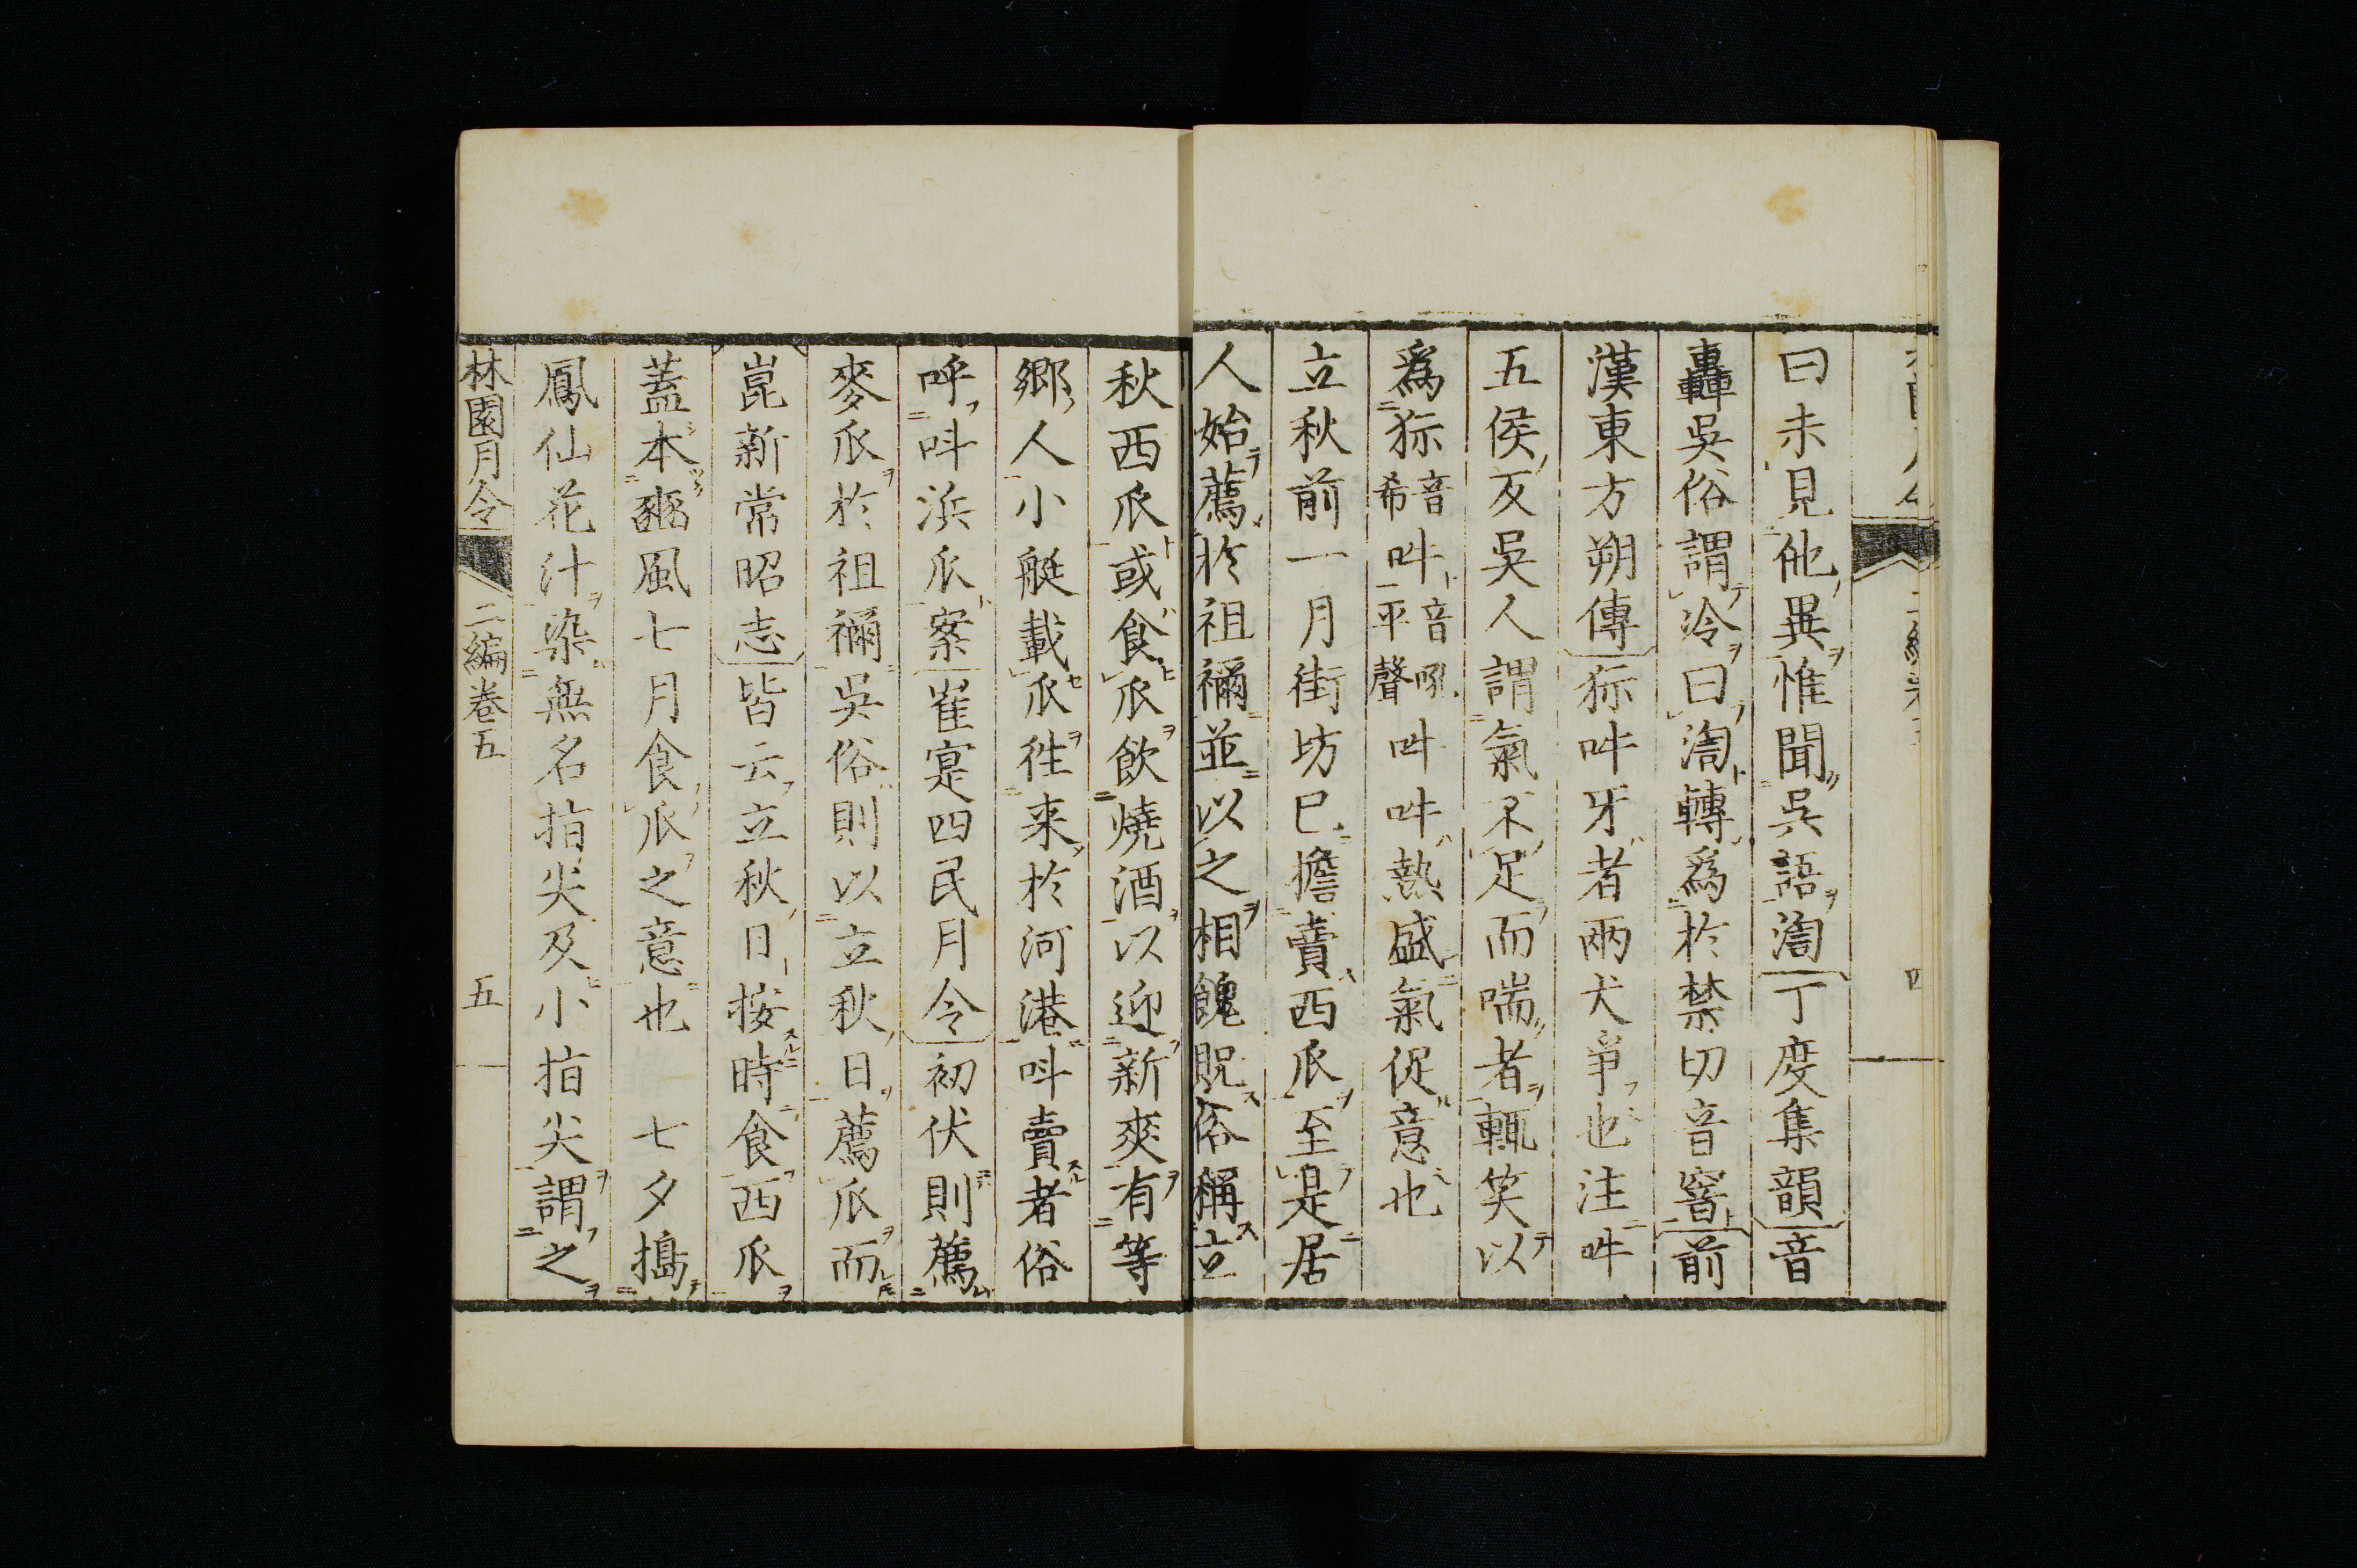 曰未見他異惟聞吳語渹丁度集韻音
轟吳俗謂冷曰渹轉為於禁切音窨前
漢東方朔傳狋吽牙者兩犬爭也注吽
五侯反吳人謂氣不足而喘者輒笑以
為狋音希吽音吼平聲吽吽熱盛氣促意也
立秋前一月街坊已擔賣西瓜至是居
人始薦於祖禰並以之相餽貺俗稱立
秋西瓜或食瓜飲燒酒以迎新爽有等
鄉人小艇載瓜往来於河港呌賣者俗
呼呌浜瓜案崔寔四民月令初伏則薦
麥瓜於祖禰吳俗則以立秋日薦瓜而
崑新常昭志皆云立秋日按時食西瓜
蓋本豳風七月食瓜之意也 七夕搗
鳳仙花汁染無名指尖及小指尖謂之
林園月令 二編卷五 五